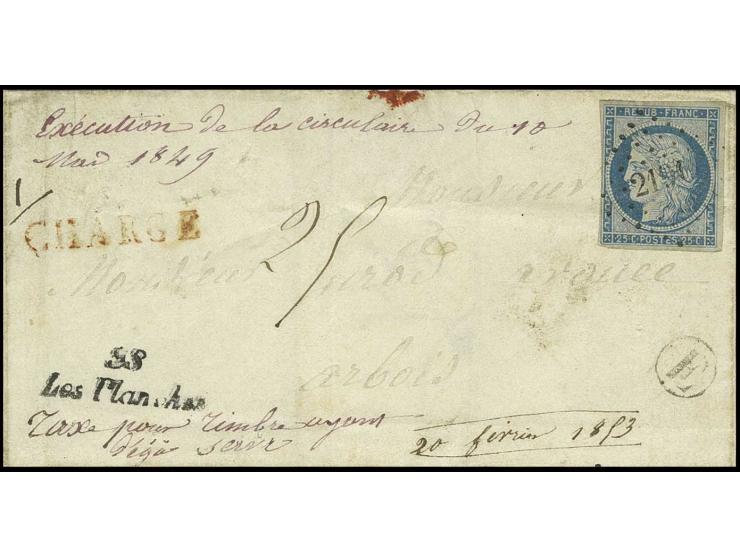 Exécution de la circulaire du 10
Mai 1849
REPUB·FRANC·
25·C·POSTES·25·C
1/
CHARGÉ
Monsieur
25
Monsieur
arbois
38
Les Planches
Taxe pour timbre ayant
déjà servi
20 février 1853